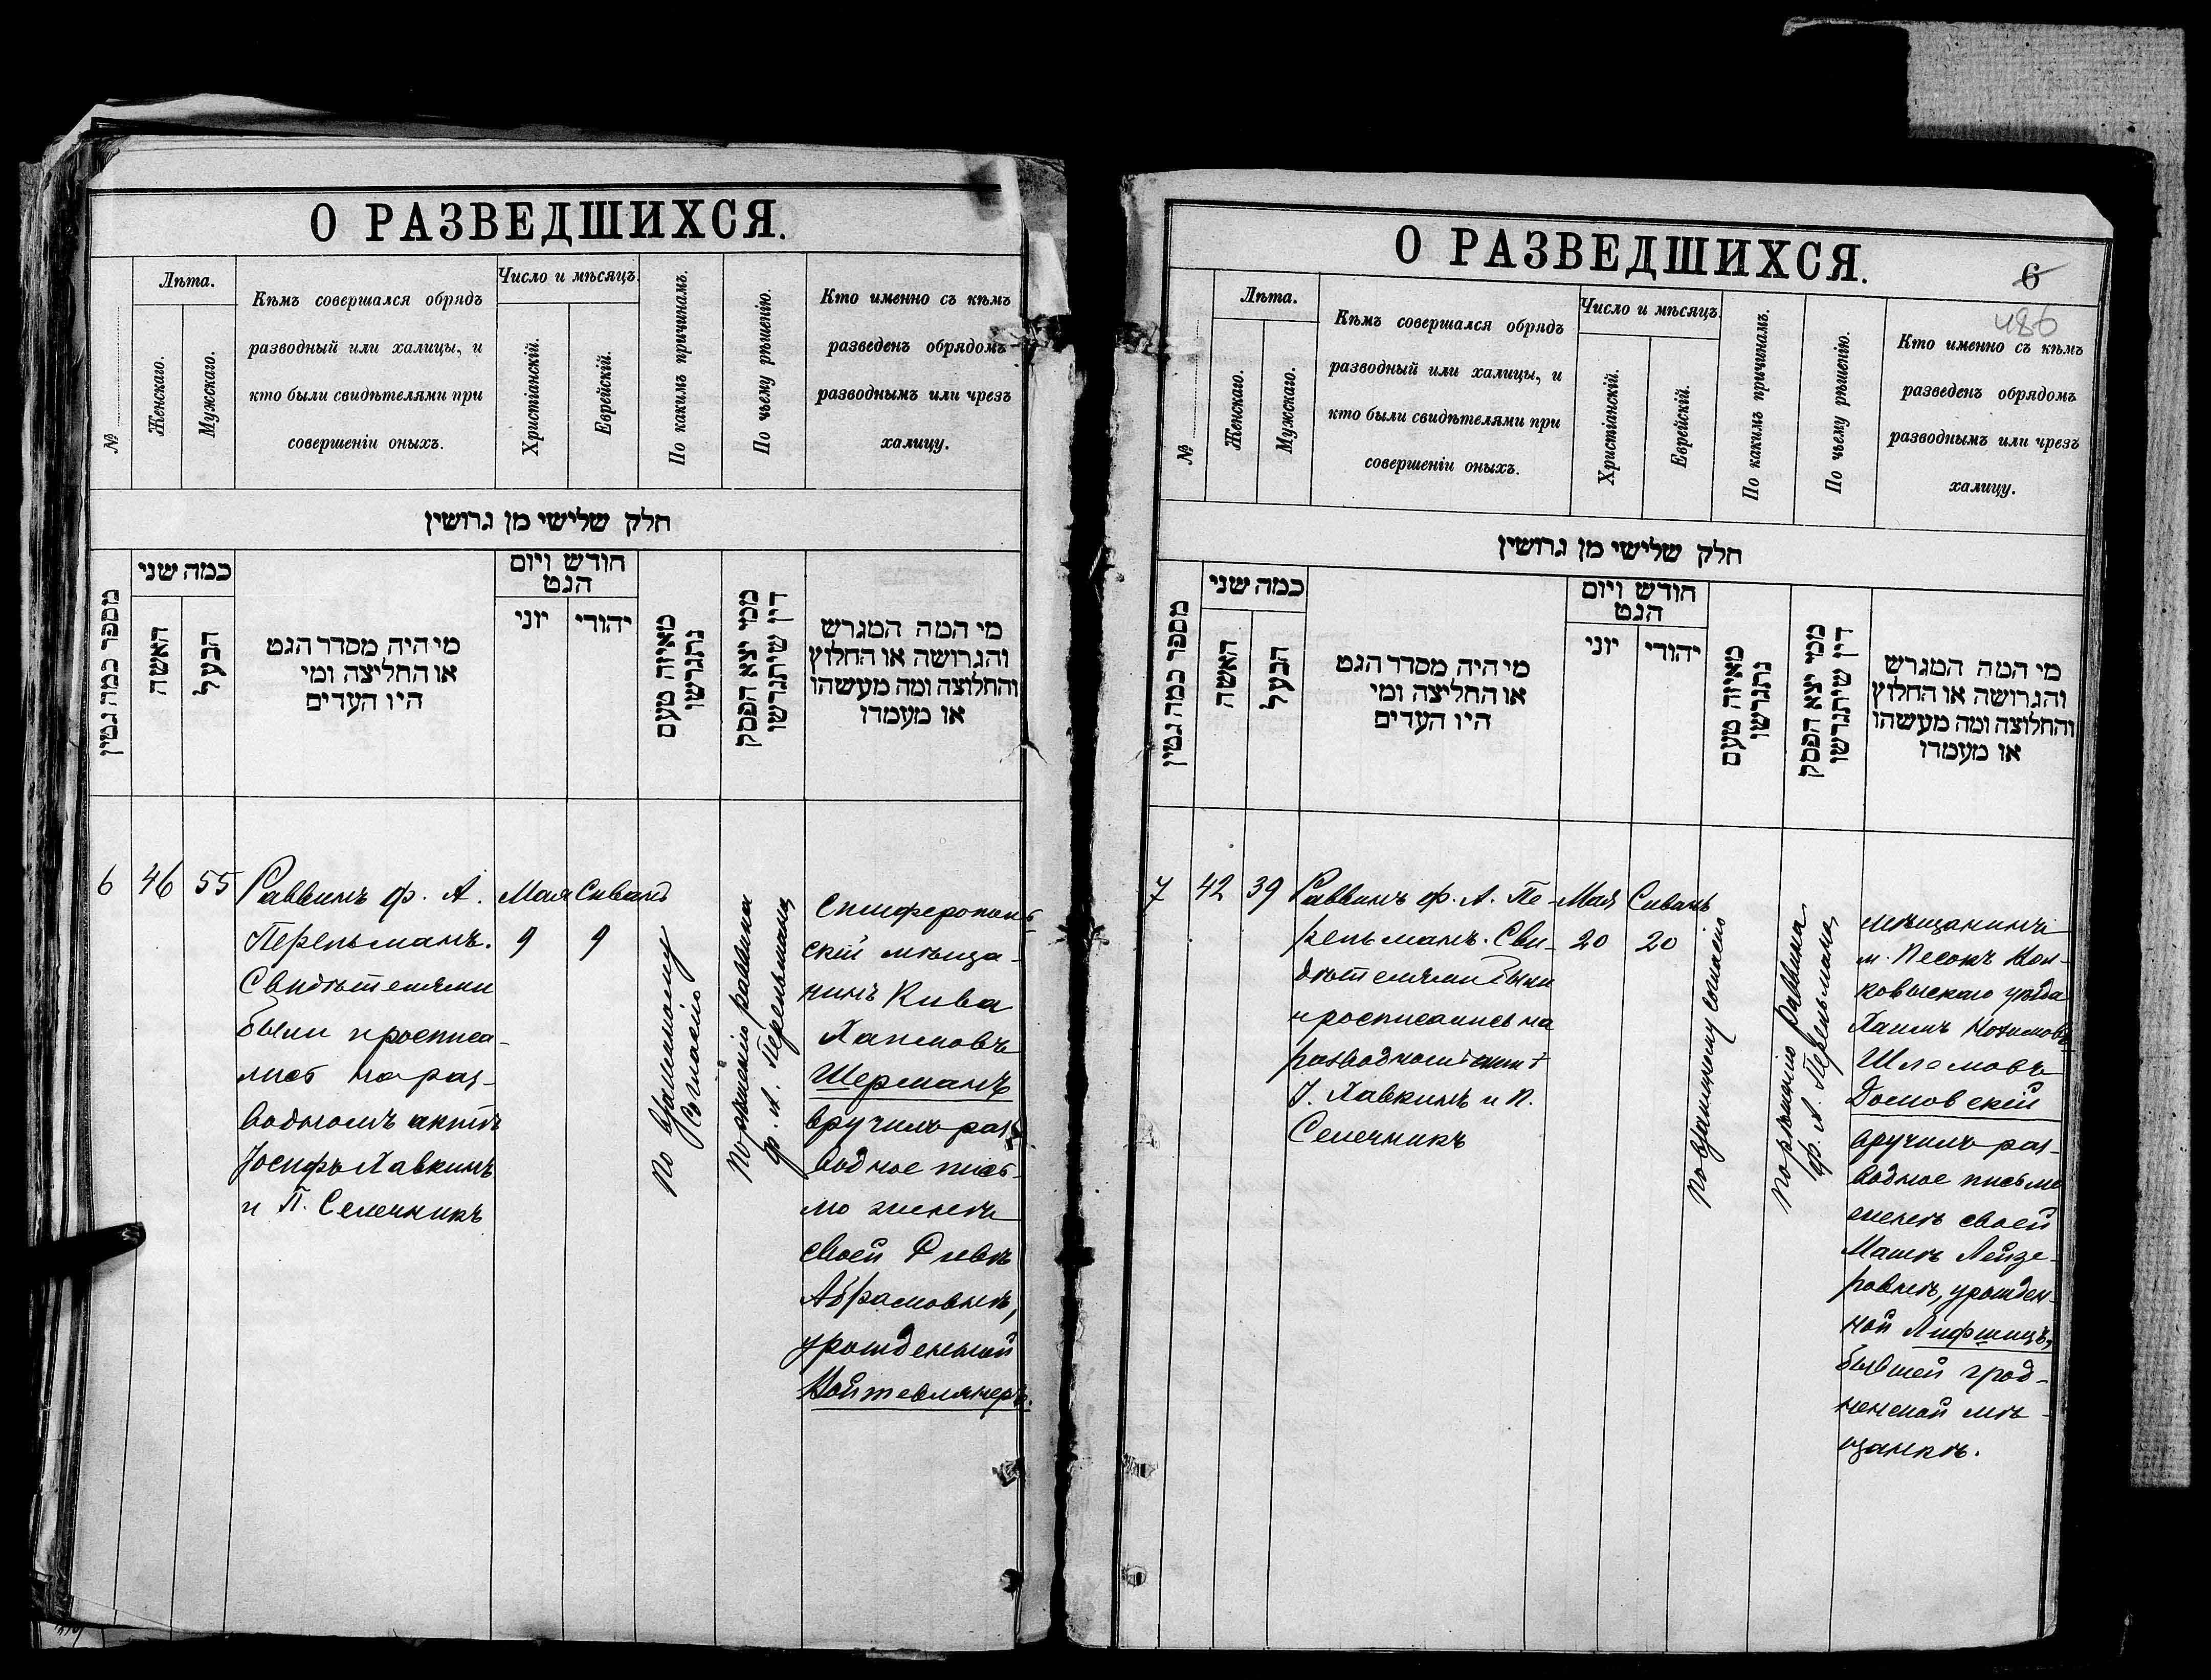 О РАЗВЕДШИХСЯ.
№
Лѣта.
Женскаго.
Мужскаго.
Кѣмъ совершался обрядъ
разводный или халицы, и
кто были свидѣтелями при
совершеніи оныхъ.
Число и мѣсяцъ.
Христіанскій.
Еврейскій.
По какимъ причинамъ.
По чьему рѣшенію.
Кто именно съ кѣмъ
разведенъ обрядомъ
разводнымъ или чрезъ
халицу.
חלק שלישי מן גרושין
מספר כמה גטין
כמה שני
האשה
הבעל
מי היה מסדר הגט
או החליצה ומי
היו העדים
חודש ויום
הגט
יוני
יהודי
מאיזה טעם
נתגרשו
ממי יצא הפסק
דין שיתגרשו
מי המה המגרש
והגרושה או החלוץ
והחלוצה ומה מעשהו
או מעמדו
6
46
55
Раввинъ Ф. А.
Перельманъ.
Свидѣтелями
были и росписа-
лись на раз-
водномъ актѣ
Іосифъ Хавкинъ
и П. Селечникъ
Мая
9
Сиванъ
9
по взаимному
согласію
по рѣшенію раввина
Ф. А. Перельмана
Симферополь
скій мѣща-
нинъ Кива
Хаимовъ
Шерманъ
вручилъ раз-
водное пись-
мо женѣ
своей Ривкѣ
Абрамовнѣ,
урожденной
Войтевлянеръ.
О РАЗВЕДШИХСЯ.
6
486
№
Лѣта.
Женскаго.
Мужскаго.
Кѣмъ совершался обрядъ
разводный или халицы, и
кто были свидѣтелями при
совершеніи оныхъ.
Число и мѣсяцъ.
Христіанскій.
Еврейскій.
По какимъ причинамъ.
По чьему рѣшенію.
Кто именно съ кѣмъ
разведенъ обрядомъ
разводнымъ или чрезъ
халицу.
חלק שלישי מן גרושין
מספר כמה גטין
כמה שני
האשה
הבעל
מי היה מסדר הגט
או החליצה ומי
היו העדים
חודש ויום
הגט
יוני
יהודי
מאיזה טעם
נתגרשו
ממי יצא הפסק
דין שיתגרשו
מי המה המגרש
והגרושה או החלוץ
והחלוצה ומה מעשהו
או מעמדו
7
42
39
Раввинъ Ф. А. Пе-
рельманъ. Сви-
дѣтелями были
и росписались на
разводномъ актѣ
І. Хавкинъ и П.
Селечникъ
Мая
20
Сиванъ
20
по взаимному согласію
по рѣшенію раввина
Ф. А. Перельмана
мѣщанинъ
м. Песокъ Вол-
ковыскаго уѣзда
Хаимъ Нохимовъ
Шлемовъ
Домовскій
вручилъ раз-
водное письмо
женѣ своей
Машѣ Лейзе-
ровнѣ, урожден-
ной Лифшицъ,
бывшей грод-
ненской мѣ-
щанкѣ.